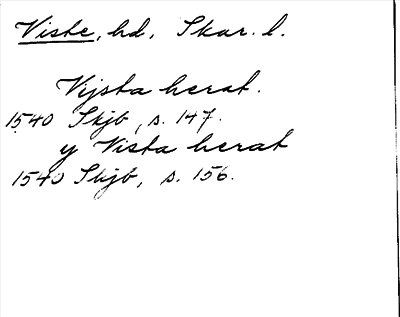 Viste, hd, Skar. l.
Vijsta herat.
1540 Skjb, s. 147.
y Vista herat
1540 Skjb, s. 156.